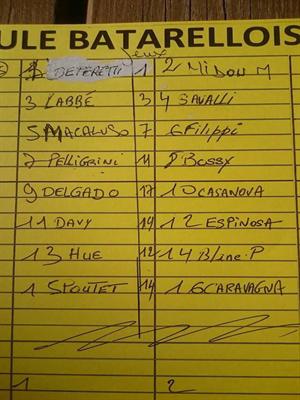 ULE BATARELLOIS
Jeux
1 DEFERETTI 1 2 MIDON M
3 LABBÉ 3 4 SAVALLI
5 MACALUSO 7 6 Filippi
7 PELLIGRINI 11 8 Bossy
9 DELGADO 17 10 CASANOVA
11 DAVY 14 12 ESPINOSA
13 HUE 12 14 Blanc.P
1 SPOUTET 14 16 CARAVAGNA
1 2